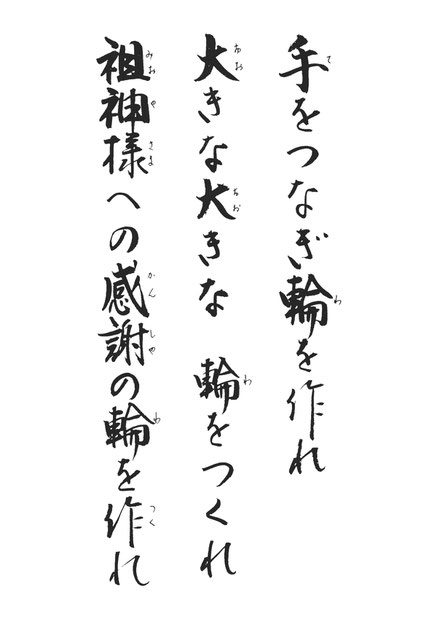 手をつなぎ輪を作れ
大きな大きな 輪をつくれ
祖神様への感謝の輪を作れ